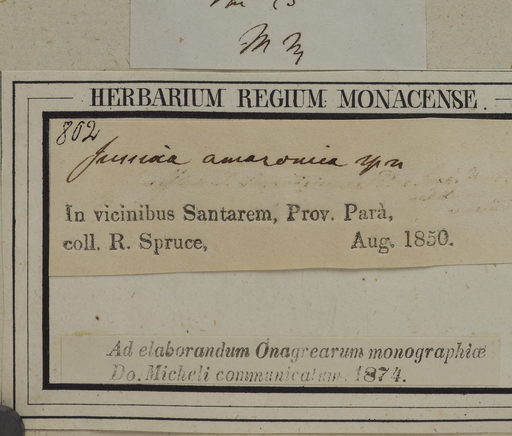 HERBARIUM REGIUM MONACENSE.
802
Jussiaea amazonica spn
In vicinibus Santarem, Prov. Parà,
coll. R. Spruce, Aug. 1850.
Ad elaborandum Onagrearum monographiæ
Do. Micheli communicatum. 1874.